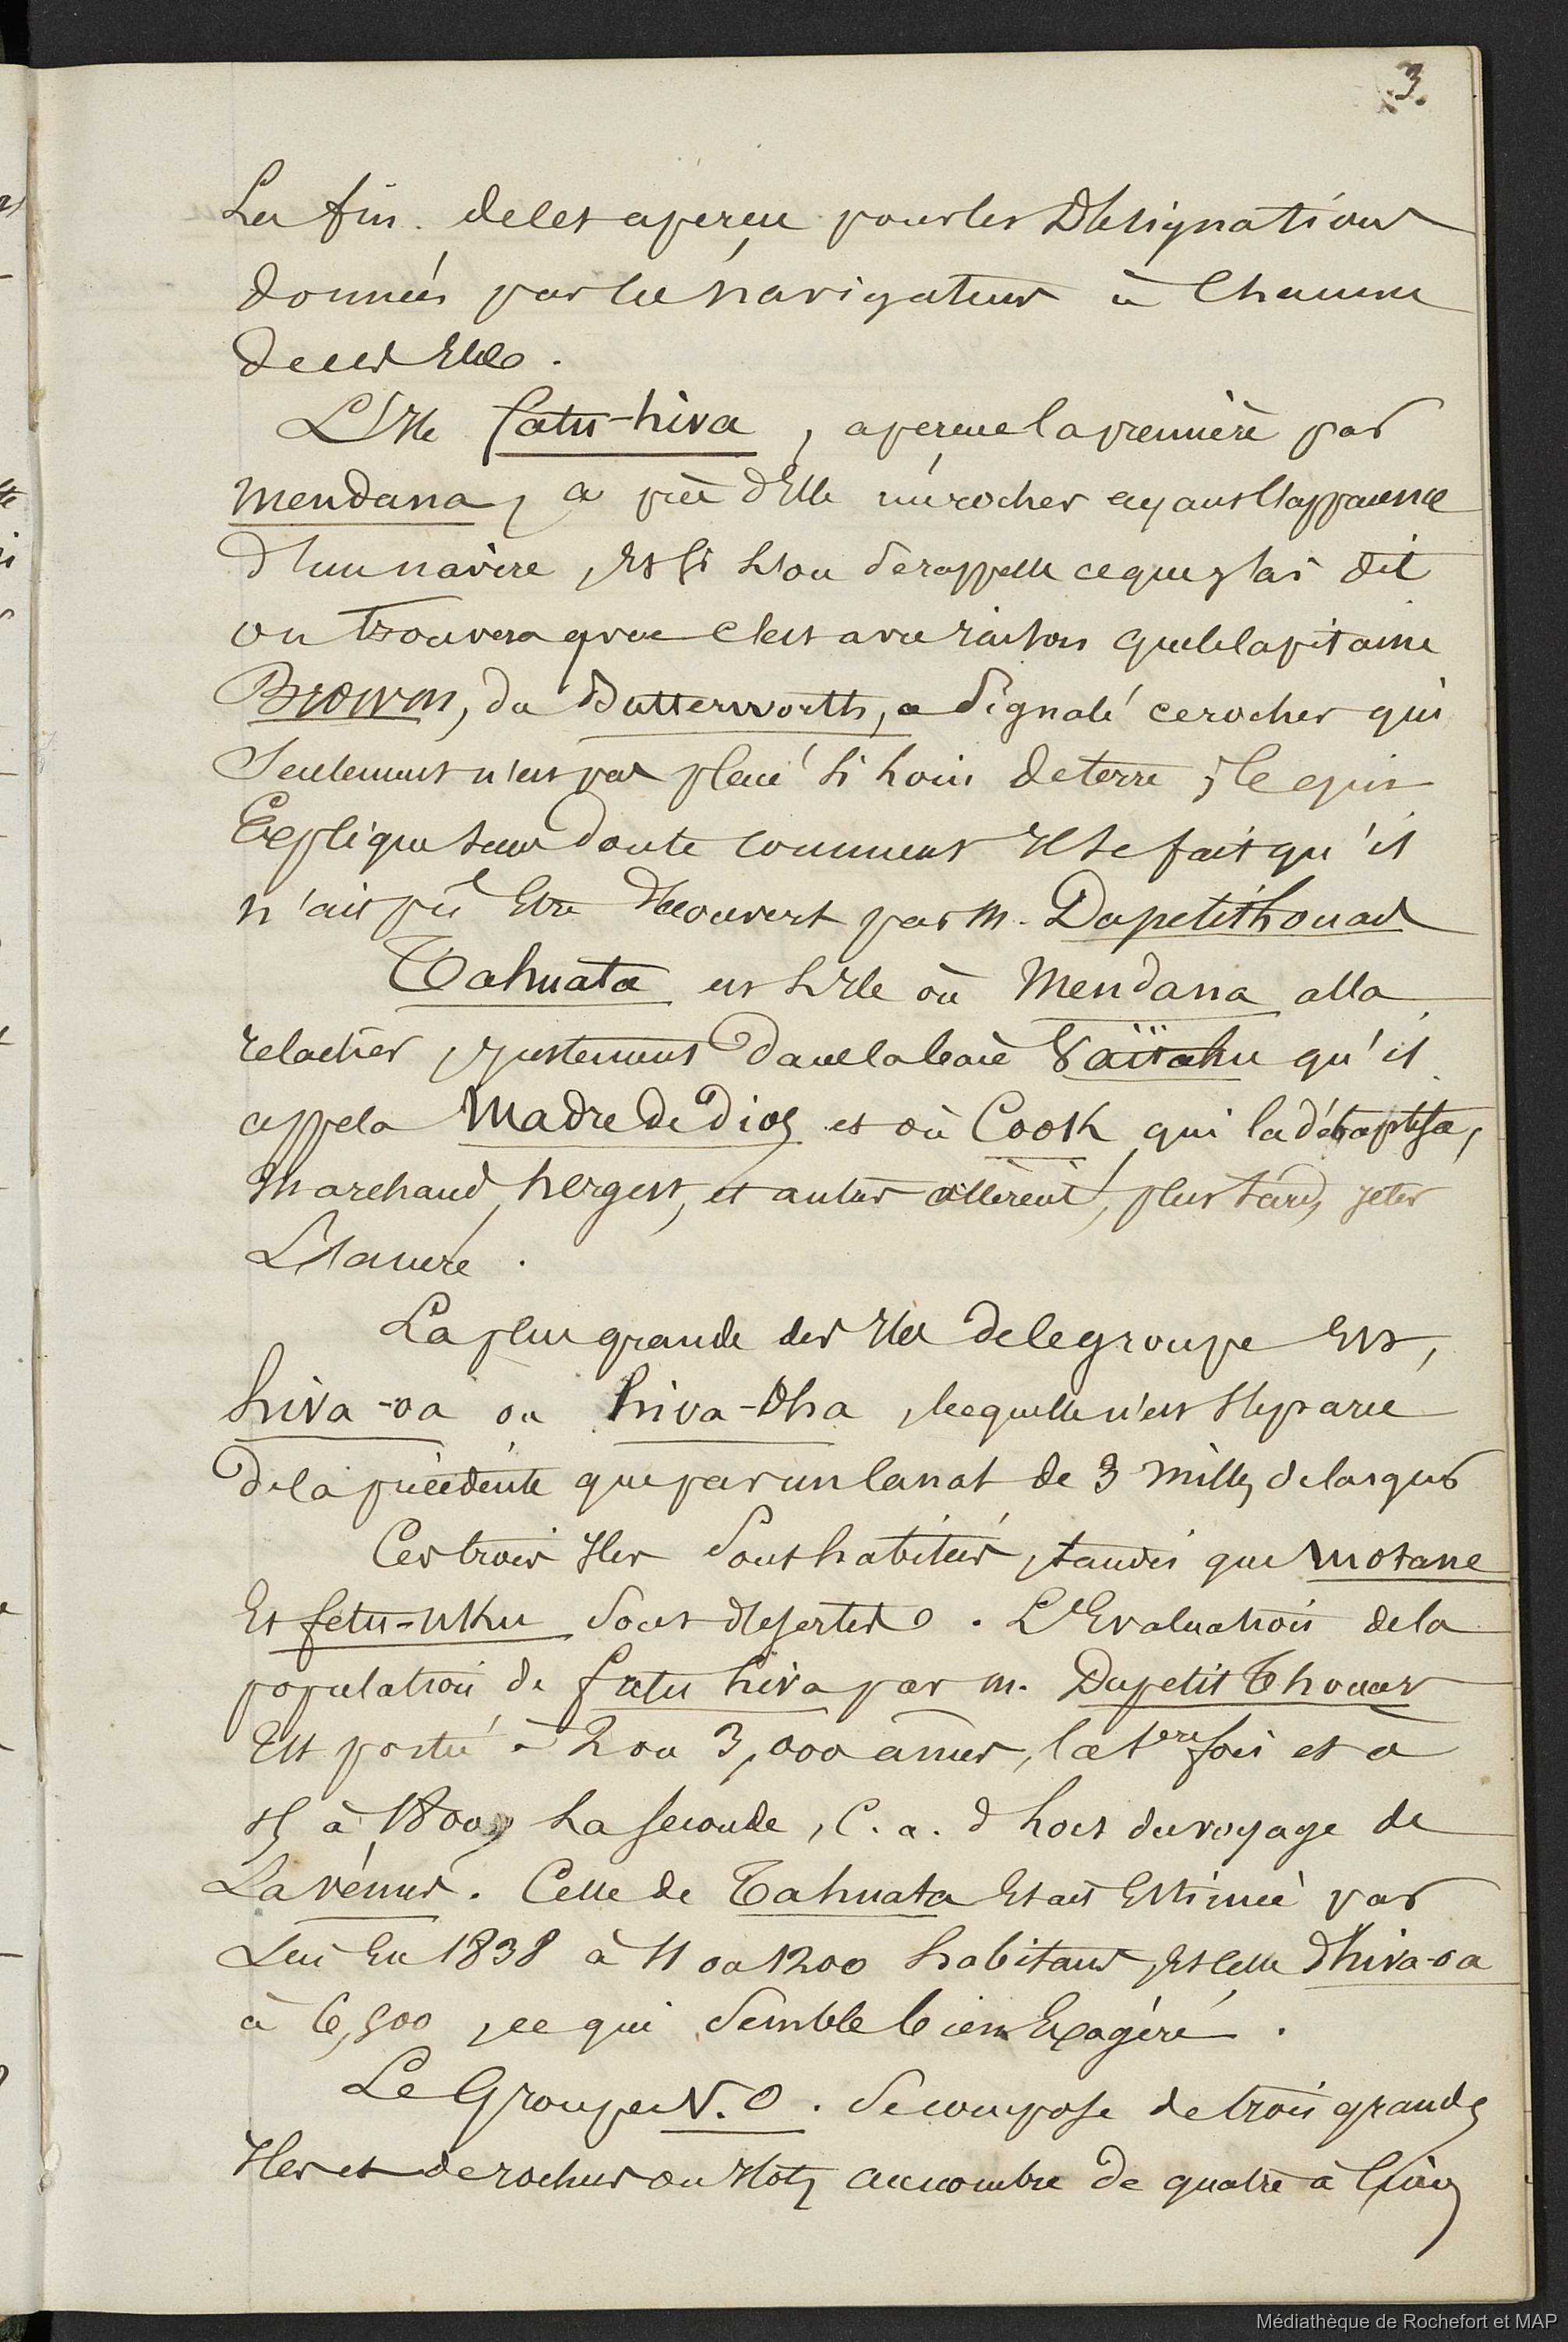 3.
La fin de cet aperçu pour les Désignations
données par les navigateurs à chacune
de ces Elles.
L'Ile fatu-hiva, aperçue la première par
Mendana, a près d'Elle un rocher ayant l'apparence
d'un navire, Et si l'on se rappelle ce que j'ai dit
on trouvera que c'est avec raison que le Capitaine
Brown, du Butterworth, a signalé ce rocher qui
Seulement n'est pas placé si loin de terre ; ce qui
Explique sans doute comment Il se fait qu'il
n'ait pû être découvert par M. Dupetithouars
Tahuata est l'Ile où Mendana alla
relacher, justement dans la baie Vaïtahu qu'il
appela Madre de Dios et où Cook qui la débaptisa,
Marchand, hergest, et autres allèrent, plus tard, jeter
L'ancre.
La plus grande des Iles de ce groupe Est,
hiva-oa ou hiva-Oha, laquelle n'est séparée
de la précédente que par un canal de 3 milles de largeur
Ces trois Iles sont habitées, tandis que Motane
Et fetu-uku sont désertes. L'Evaluation de la
population de fatu hiva par M. Dupetit Thouars
Est portée à 2 ou 3,000 âmes, la 1ère fois et à
à 1800, la seconde, C. a. d lors du voyage de
La vénus. Celle de Tahuata Etait Estimée par
Lui En 1838 à 11 ou 1200 habitans, Et celle d'hiva-oa
à 6,500, ce qui semble bien Exagéré.
Le Groupe N.O. se compose de trois grandes
Iles et de rochers ou Ilots au nombre de quatre à Cinq
Médiathèque de Rochefort et MAP